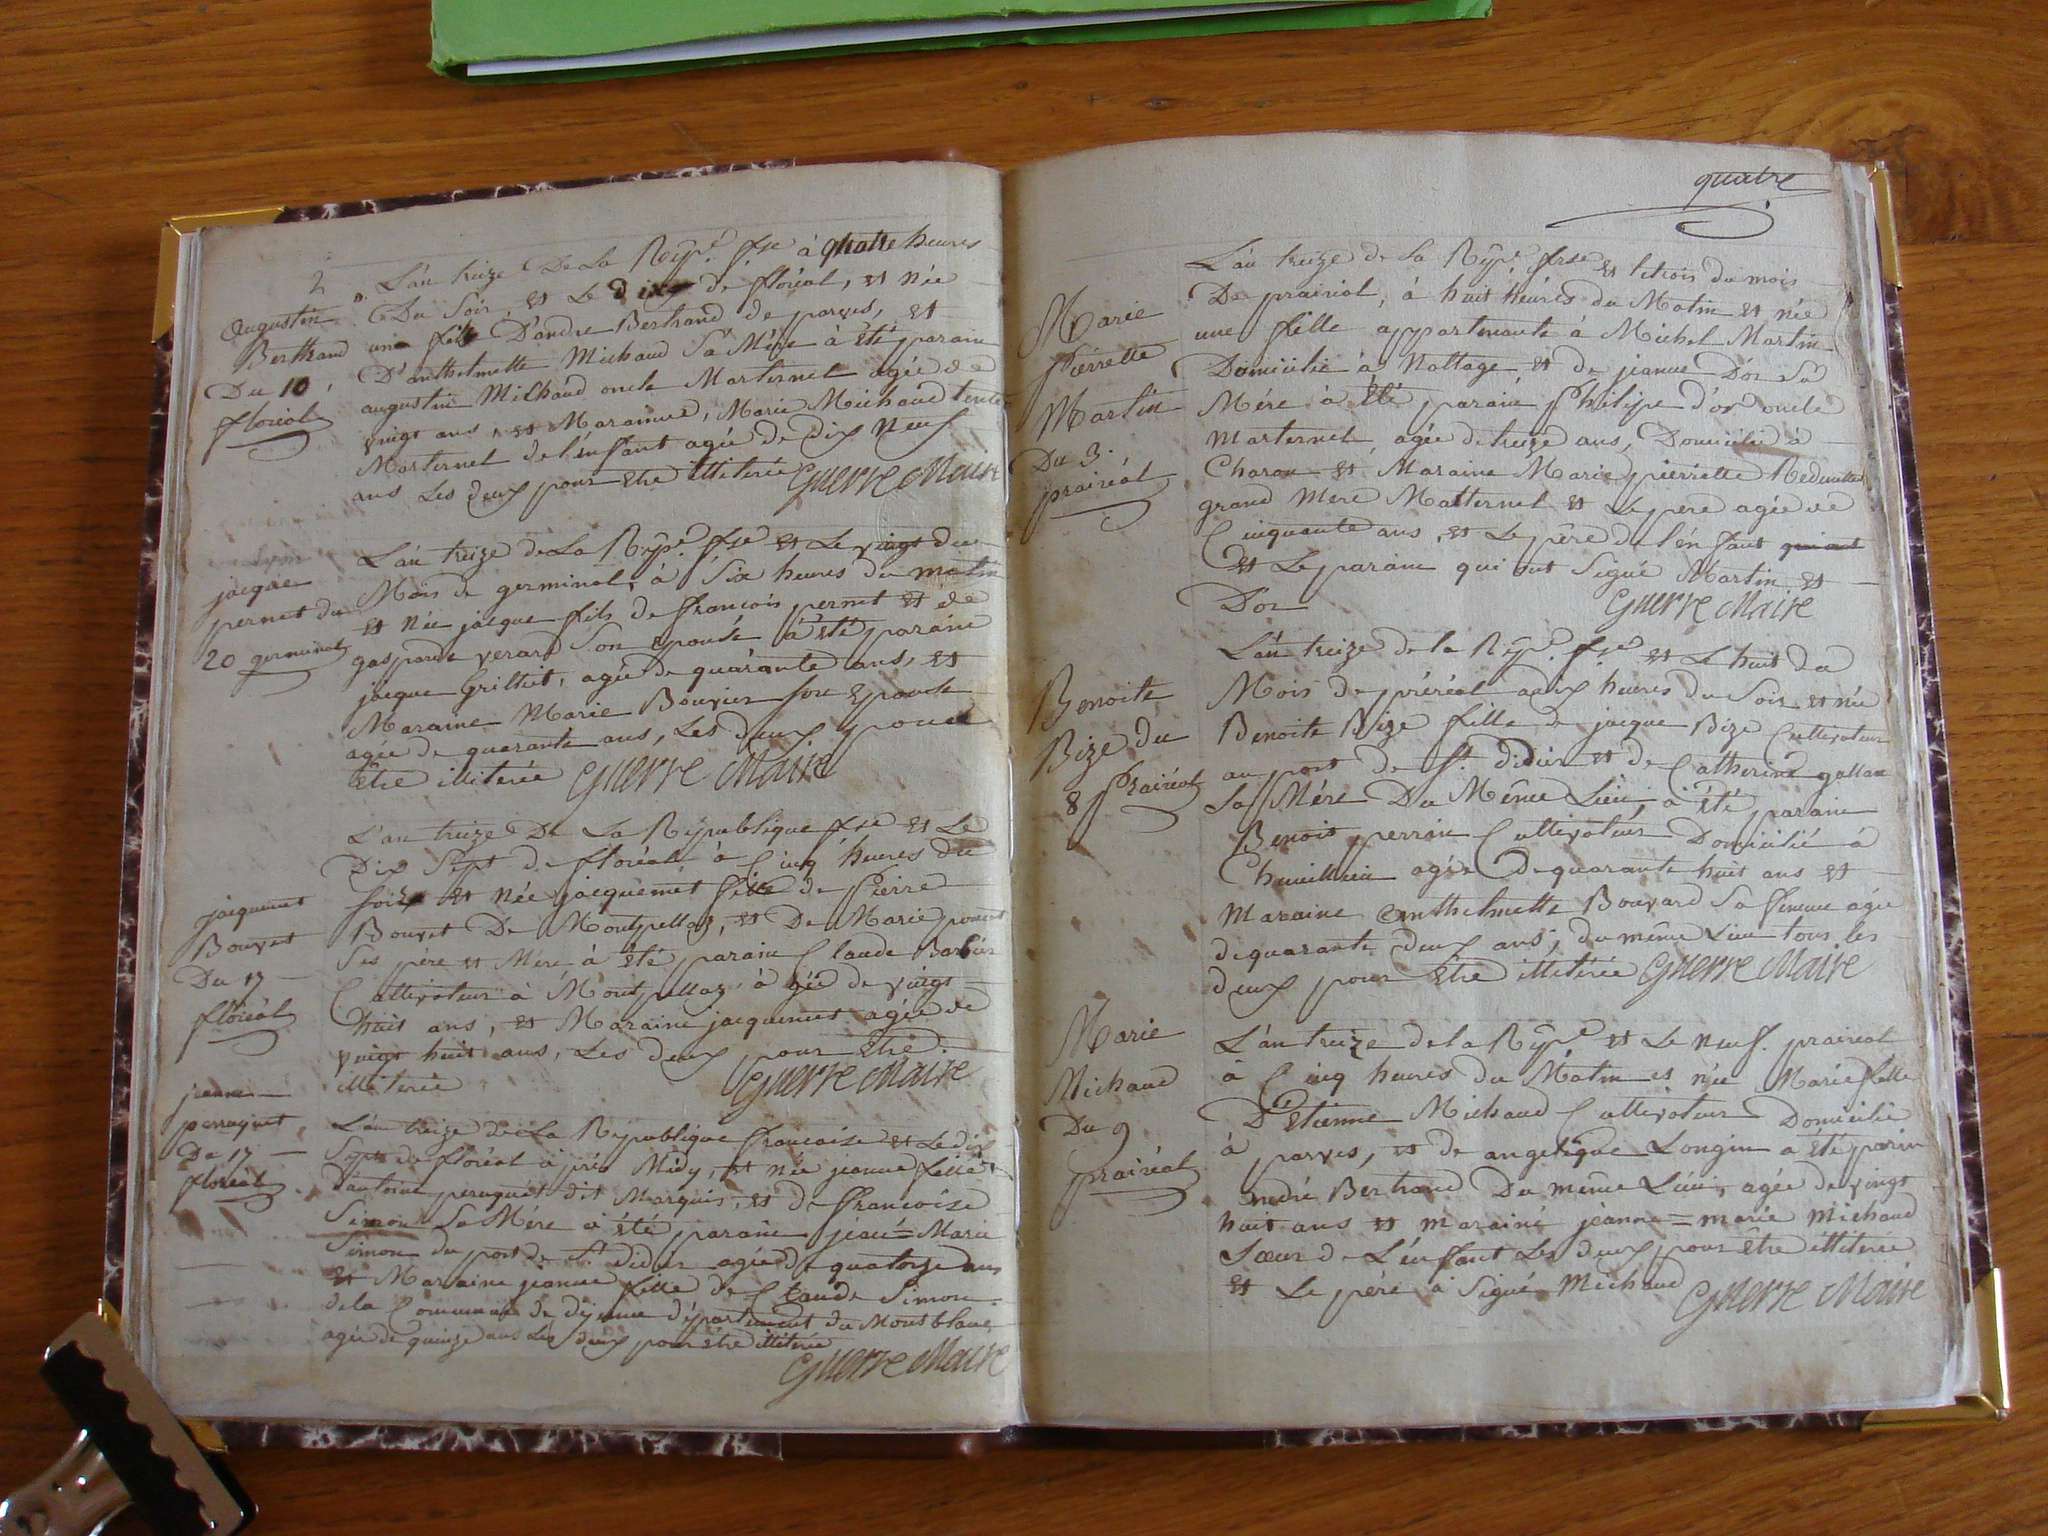 2
Augustin
Bertrand
Du 10
floréal
L'an treize De La Rép.e fse à quatre heures
Du Soir, et Le dix de floréal, est née
un fils D'andre Bertrand de parves, et
D'anthelmette Michaud Sa Mère à été parain
augustin Michaud oncle Marternel agée de
vingt ans, et Maraine, Marie Michaud tente
Marternel de l'enfant agée de Dix Neuf
ans Les deux pour etre illiterée Guerre Maire
jacque
pernet du
20 germinal
L'an treize de La Rép.e fse et Le vingt du
Mois de germinal, à Six heures du matin
et née jacque fils de françois pernet et de
gasparde verard Son Epouse à été parain
jacque Grilliet, agée de quarante ans, et
Maraine Marie Bouvier Son Epouse
agée de quarante ans, Les deux pour
Etre illiterée Guerre Maire
jacquemet
Bouvet
Du 17
floréal
L'an treize De La République fse et Le
Dix Sept de floréal à Cinq heures du
Soir et née jacquemet fille de Pierre
Bouvet De Montpellaz, et De Marie poncet
Ses père et Mère à été parain Claude Barbier
Cultivateur à Montpellaz agée de vingt
huit ans, et Maraine jacquemet agée de
vingt huit ans, Les deux pour Etre
illiterée Guerre Maire
jeanne
perruquet
Du 17
floréal
L'an treize de La République francaise et Le dix
Sept de floréal à près Midy, et née jeanne fille
d'antoine peruquet dit Marquis, et de francoise
Simon Sa Mére à été parain jean=Marie
Simon du port de St didier agée de quatorze ans
et Maraine jeanne fille de Claude Simon
de la Commune de département du Montblanc
agée de quinze ans Les deux pour être illitérée
Guerre Maire
quatre
Marie
Pierrette
Martin
Du 3
prairéal
L'an treize de La Rép.e frse et le trois du mois
De prairial, à huit heures du Matin et née
une fille appartenante à Michel Martin
Domicilié à Nattage et de jeanne D'or Sa
Mére à été parain Philipe d'or oncle
marternel agée de treize ans, Domicilié à
Charou et Maraine Marie pierrette
grand Mere Matternel et Le père agée de
Cinquante ans, et Le père de l'enfant qui ont
et Le parain qui ont Signé Martin et
D'or Guerre Maire
Benoite
Bize du
8 Prairéal
L'an treize de la Rép.e fse et Le huit du
Mois de préréal a dix heures du Soir et née
Benoite Bize fille de jacque Bize Cultivateur
au port de St didier et de Catherine gallan
Sa Mére Du Même Lieu, à été parain
Benoit perrin Cultivateur Domicilié à
agée de quarante huit ans et
maraine anthelmette Bouvard Sa femme agée
de quarante deux ans, du même Lieu tous les
deux pour être illitérée Guerre Maire
Marie
Michaud
Du 9
prairéal
L'an treize de la Rép.e et Le neuf prairéal
à Cinq heures du Matin et née Marie fille
D'Etienne Michaud Cultivateur Domicilié
à parves, et de angelique Longin a été parin
andré Bertrand Du même Lieu, agée de vingt
huit ans et maraine jeanne=marie Michaud
Sœur de L'enfant Les deux pour être illiterée
et Le père à Signé Michaud Guerre Maire